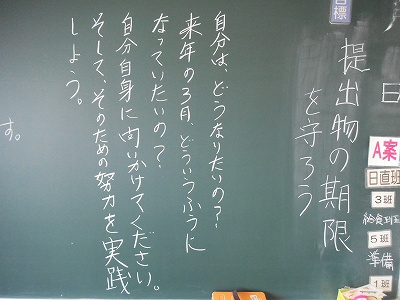 目標
提出物の期限
を守ろう
自分は、どうなりたいの？
来年の3月、どういうふうに
なっていたいの？
自分自身に向いかけてください。
そして、そのための努力を実践
しよう。
す。
日
A案
日直班
3班
給食班
5班
準備
1班